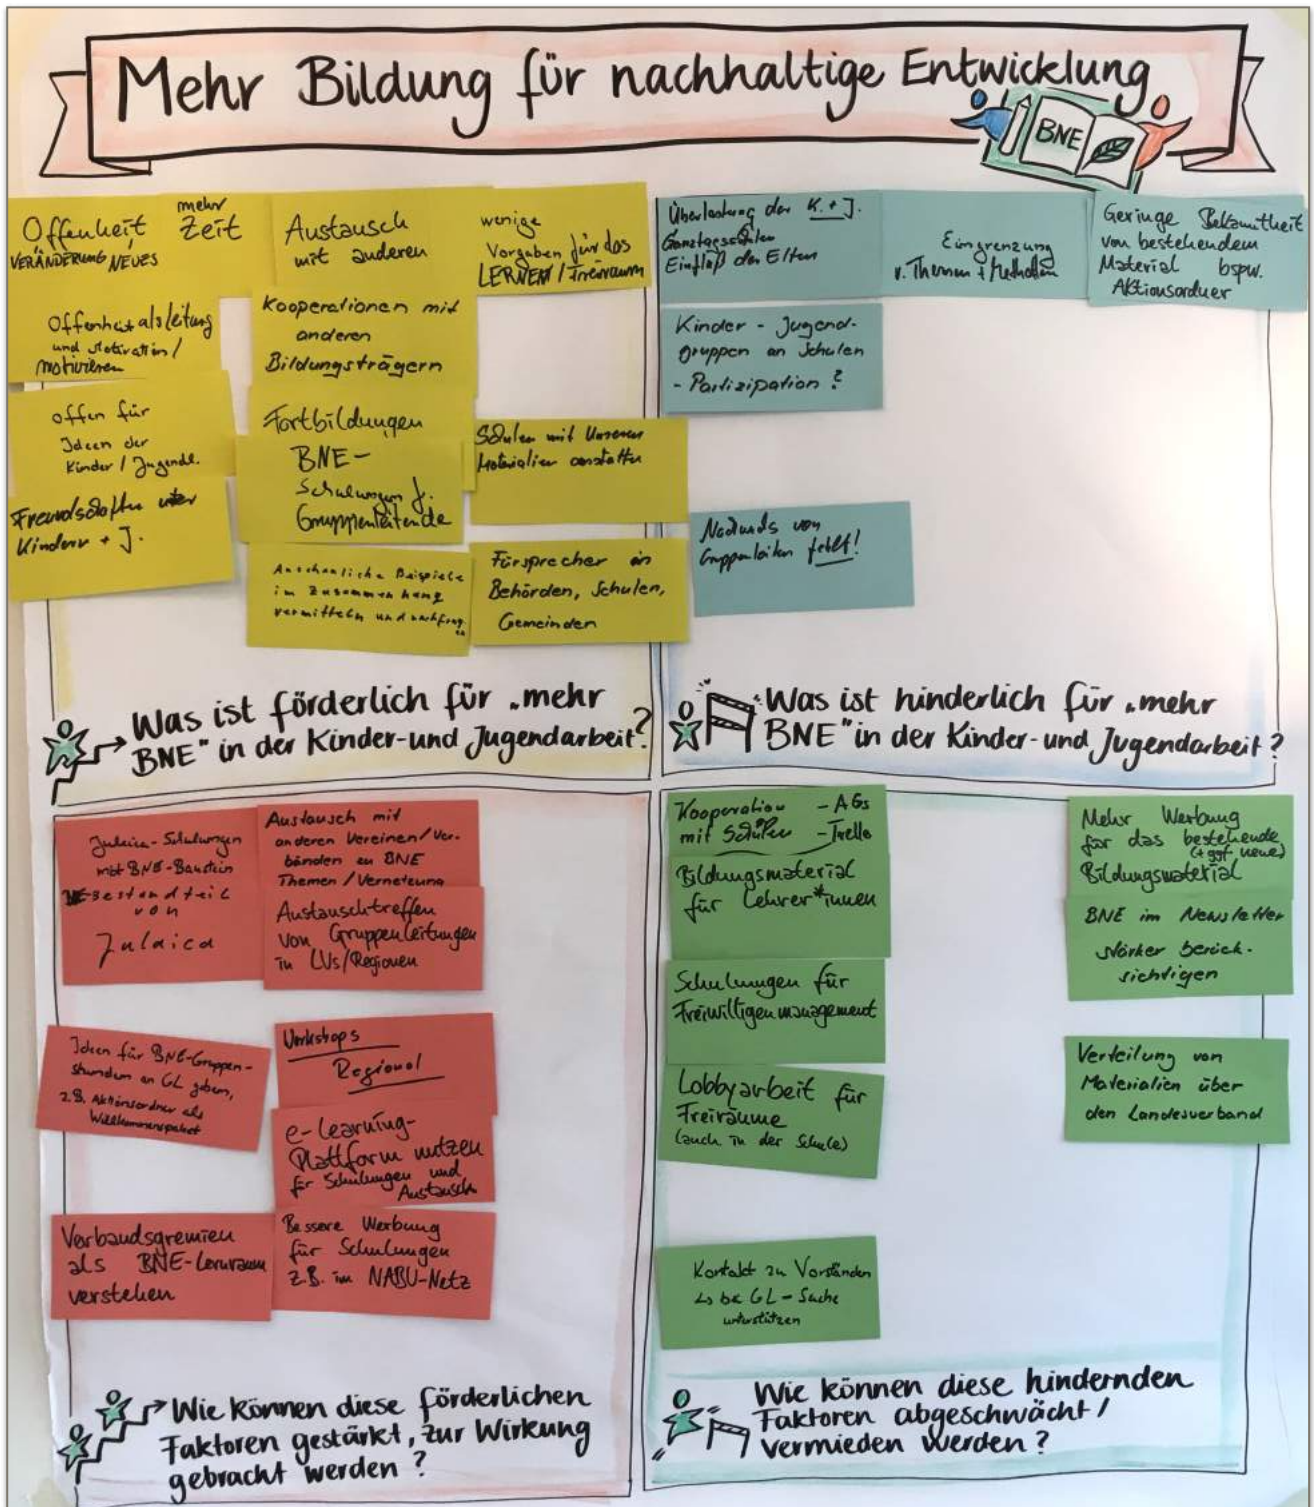 Mehr Bildung für nachhaltige Entwicklung
BNE
Offenheit
VERÄNDERUNG NEUES
mehr
Zeit
Austausch
mit anderen
wenige
Vorgaben für das
LERNEN / Freiraum
Offenheit als Leitung
und Motivation /
motivieren
Kooperationen mit
anderen
Bildungsträgern
offen für
Ideen der
Kinder / Jugendl.
Fortbildungen
BNE-
Schulungen f.
Gruppenleitende
Schulen mit Unseren
Materialien ausstatten
Freundschaften unter
Kindern + J.
Anschauliche Beispiele
im Zusammenhang
vermitteln und nachfragen
Fürsprecher in
Behörden, Schulen,
Gemeinden
Was ist förderlich für „mehr
BNE" in der Kinder- und Jugendarbeit?
Überlastung der K. + J.
Ganztagsschulen
Einfluß der Eltern
Eingrenzung
v. Themen + Methoden
Geringe Bekanntheit
von bestehendem
Material bspw.
Aktionsordner
Kinder - Jugend-
gruppen an Schulen
- Partizipation ?
Nachwuchs von
Gruppenleitern fehlt!
Was ist hinderlich für „mehr
BNE" in der Kinder- und Jugendarbeit?
Juleica-Schulungen
mit BNE-Baustein
Bestandteil
von
Juleica
Austausch mit
anderen Vereinen/Ver-
bänden zu BNE
Themen / Vernetzung
Austauschtreffen
von Gruppenleitungen
in LVs/Regionen
Ideen für BNE-Gruppen-
stunden an GL geben,
z.B. Aktionsordner als
Willkommenspaket
Workshops
Regional
e-Learning-
Plattform nutzen
für Schulungen und
Austausch
Verbandsgremien
als BNE-Lernraum
verstehen
Bessere Werbung
für Schulungen
z.B. im NABU-Netz
Wie können diese förderlichen
Faktoren gestärkt, zur Wirkung
gebracht werden ?
Kooperation - AGs
mit Schulen
Bildungsmaterial
für Lehrer*innen
Schulungen für
Freiwilligenmanagement
Lobbyarbeit für
Freiräume
(auch in der Schule)
Kontakt zu Vorständen
↳ bei GL-Suche
unterstützen
Mehr Werbung
für das bestehende
(+ ggf. neue)
Bildungsmaterial
BNE im Newsletter
stärker berück-
sichtigen
Verteilung von
Materialien über
den Landesverband
Wie können diese hindernden
Faktoren abgeschwächt /
vermieden werden ?